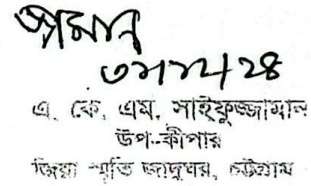 জামান
এ. কে. এম. সাইফুজ্জামান
উপ-কীপার
জিয়া স্মৃতি জাদুঘর, চট্টগ্রাম